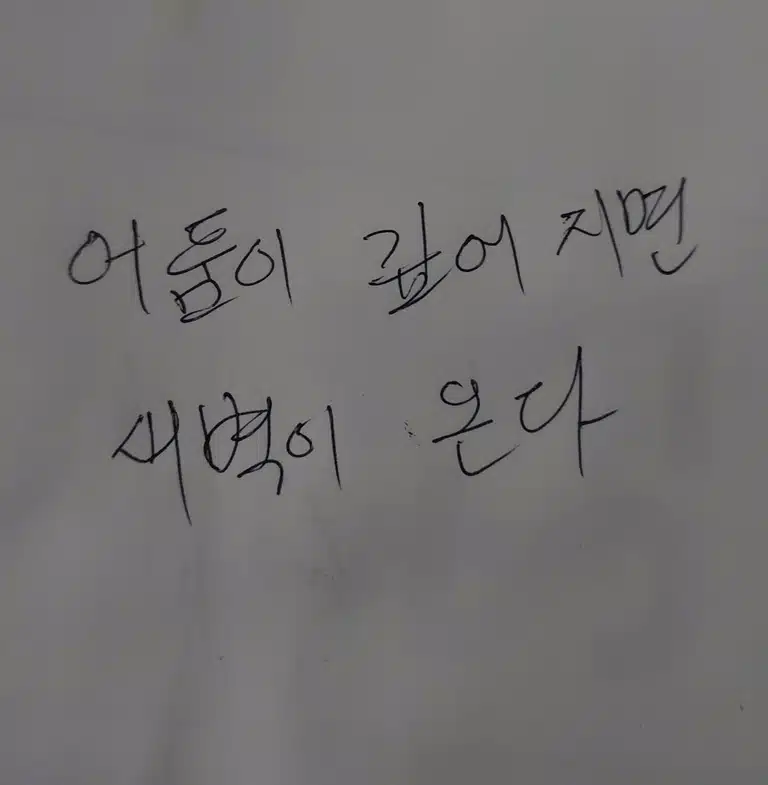 어둠이 깊어지면
새벽이 온다